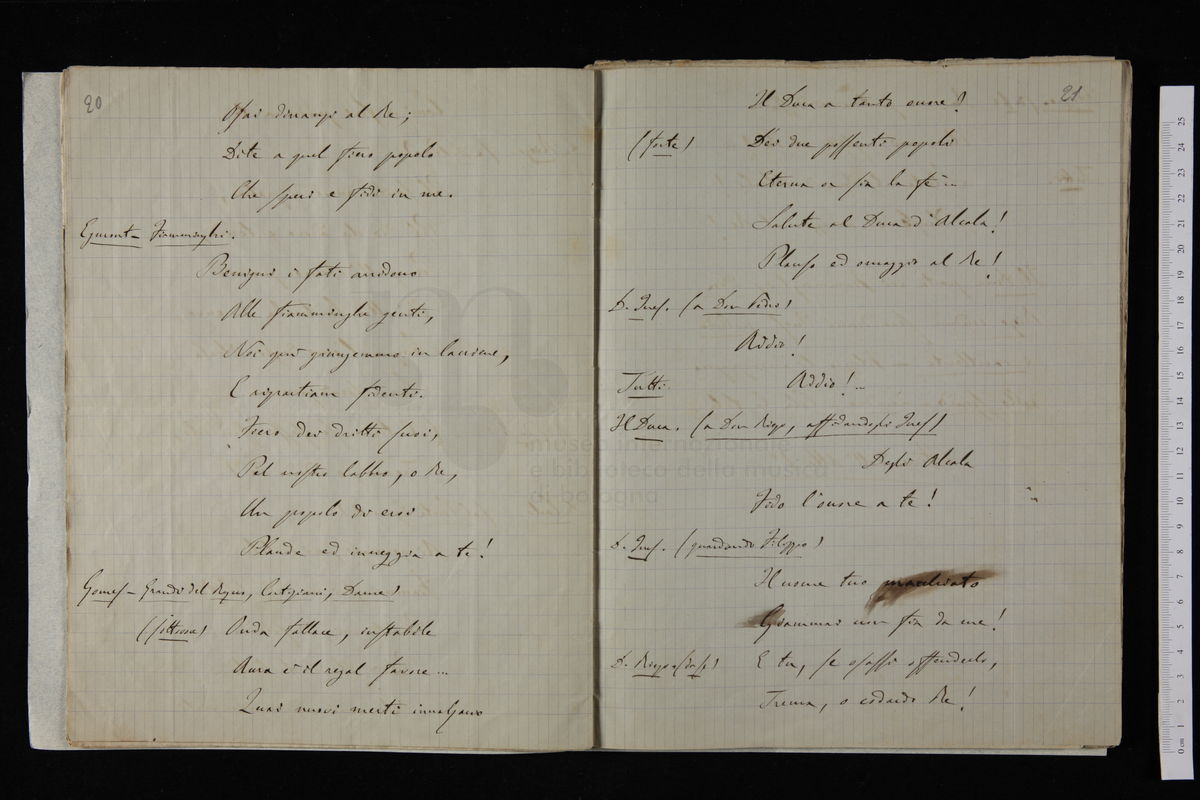 20
Osai dinanzi al Re;
Dite a quel fiero popolo
Che speri e fidi in me.
Egmont – Fiamminghi.
Benigni i fati arridono
Alle fiamminghe genti,
Noi qui giungemmo in lacrime,
E ripartiam fidenti.
Fiero dei dritti suoi,
Pel nostro labbro, o Re,
Un popolo di eroi
Plaude ed inneggia a te!
Gomez – Grandi del Regno, Cortigiani, Dame)
(sottovoce) Onda fallace, instabile
Aura è il regal favore...
Quai nuovi merti innalzano
21
Il Duca a tanto onore?
(forte) Dei due possenti popoli
Eterna or sia la fè...
Salute al Duca d'Alcala!
Plauso ed omaggio al Re!
D. Ines. (a Don Pedro)
Addio!
Tutti. Addio!...
Il Duca. (a Don Diego, affidandogli Ines)
Degli Alcala
Fido l'onore a te!
D. Ines. (guardando Filippo)
Il nome tuo macchiato
Giammai non fia da me!
D. Diego (da sè) E tu, se osassi offenderlo,
Trema, o codardo Re!
museo internazionale
e biblioteca della musica
di bologna
0 cm 1 2 3 4 5 6 7 8 9 10 11 12 13 14 15 16 17 18 19 20 21 22 23 24 25